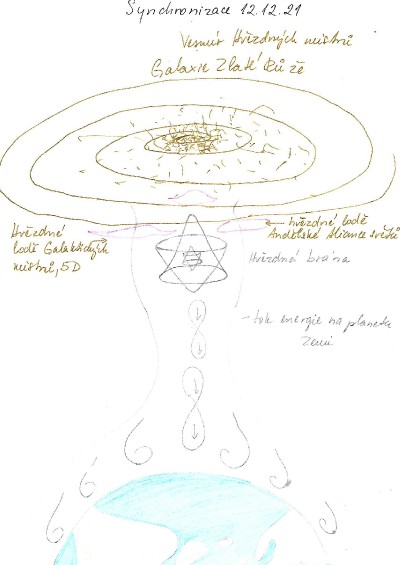 Synchronizace 12.12.21
Vesmír Hvězdných mistrů
Galaxie Zlaté Růže
Hvězdné
lodě Galaktických
mistrů, 5D
hvězdné lodě
Andělské Aliance světů
Hvězdná brána
- tok energie na planetu
Zemi